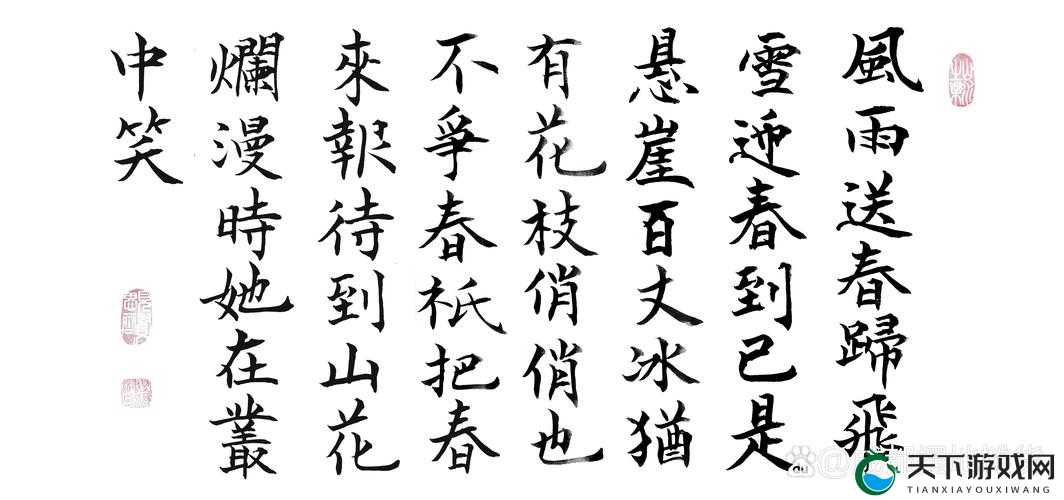 風雨送春歸飛
雪迎春到已是
悬崖百丈冰猶
有花枝俏俏也
不爭春祇把春
來報待到山花
爛漫時她在叢
中笑
天下游戏网
TIANXIAYOUXIWANG